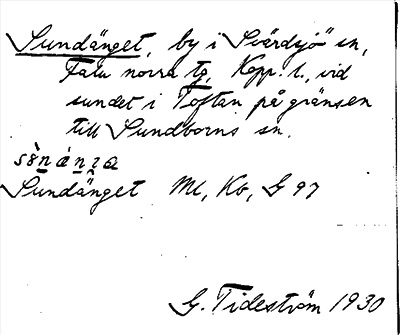 Sundänget, by i Svärdsjö sn,
Falu norra tg, Kopp. l., vid
sundet i Toftan på gränsen
till Sundborns sn.
Sundänget Ml, Kb, G 97
G. Tideström 1930